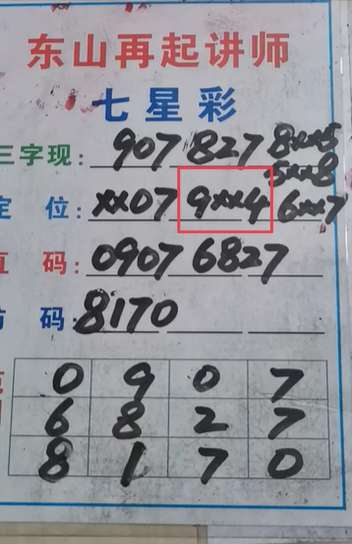 东山再起讲师
七星彩
三字现: 907 827 8××6
5××8
定位: ××07 9××4 6××7
直码: 0907 6827
码: 8170
0 9 0 7
6 8 2 7
8 1 7 0